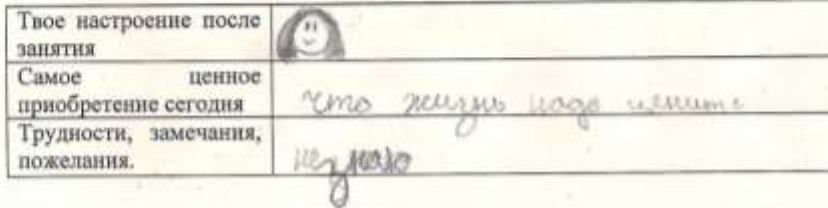 Твое настроение после
занятия
Самое ценное
приобретение сегодня
что жизнь надо ценить
Трудности, замечания,
пожелания.
незнаю